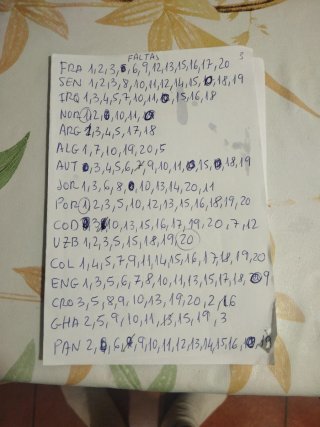 FALTAS
3
FRA 1,2,3,6,9,12,13,15,16,17,20
SEN 1,2,3,8,10,11,12,14,15,18,19
IRQ 1,3,4,5,7,10,11,15,16,18
NOR 1,2,10,11
ARG 1,3,4,5,17,18
ALG 1,7,10,19,20,5
AUT 3,4,5,6,9,10,11,15,18,19
JOR 1,3,6,8,10,13,14,20,11
POR 1,2,3,5,10,12,13,15,16,18,19,20
COD 10,13,15,16,17,19,20,7,12
UZB 1,2,3,5,15,18,19,20
COL 1,4,5,7,9,11,14,15,16,17,18,19,20
ENG 1,3,5,6,7,8,10,11,13,15,17,18,9
CRO 3,5,8,9,10,13,19,20,2,16
GHA 2,5,9,10,11,13,15,19,3
PAN 2,6,9,10,11,12,13,14,15,16